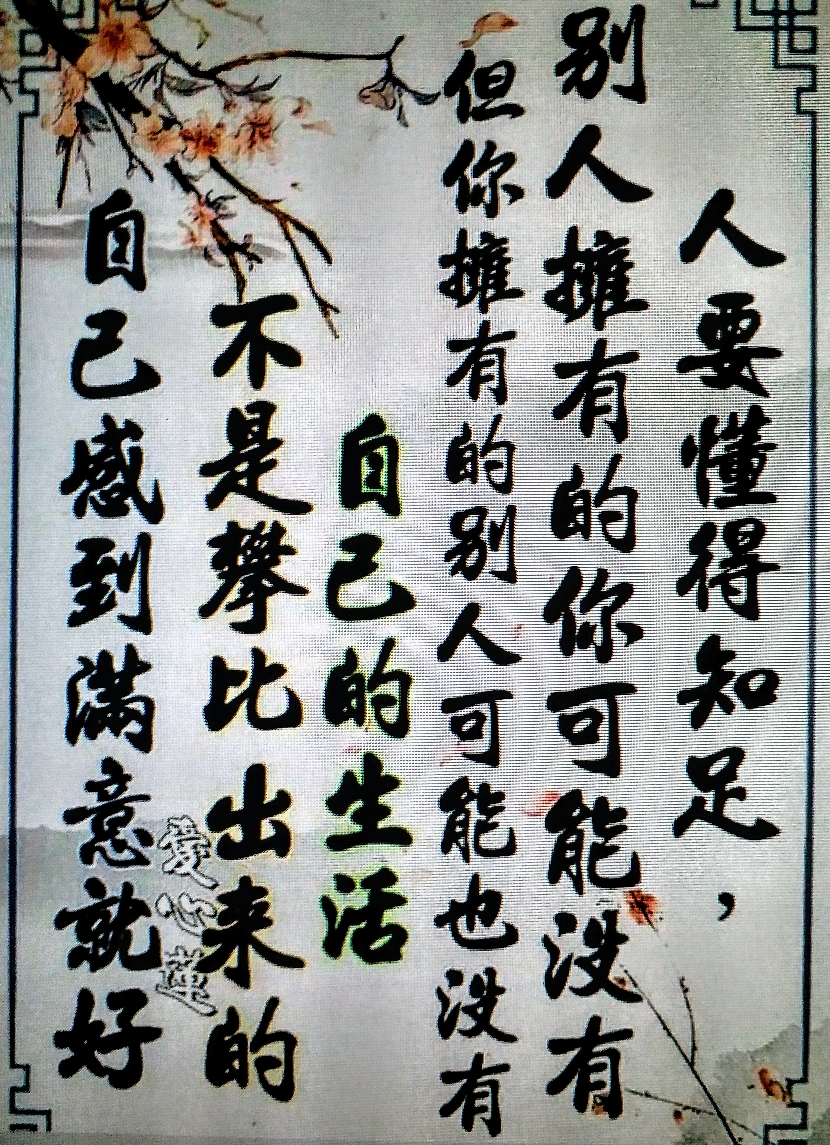 人要懂得知足，
別人擁有的你可能没有
但你擁有的別人可能也没有
自己的生活
不是攀比出来的
自己感到滿意就好
愛心蓮